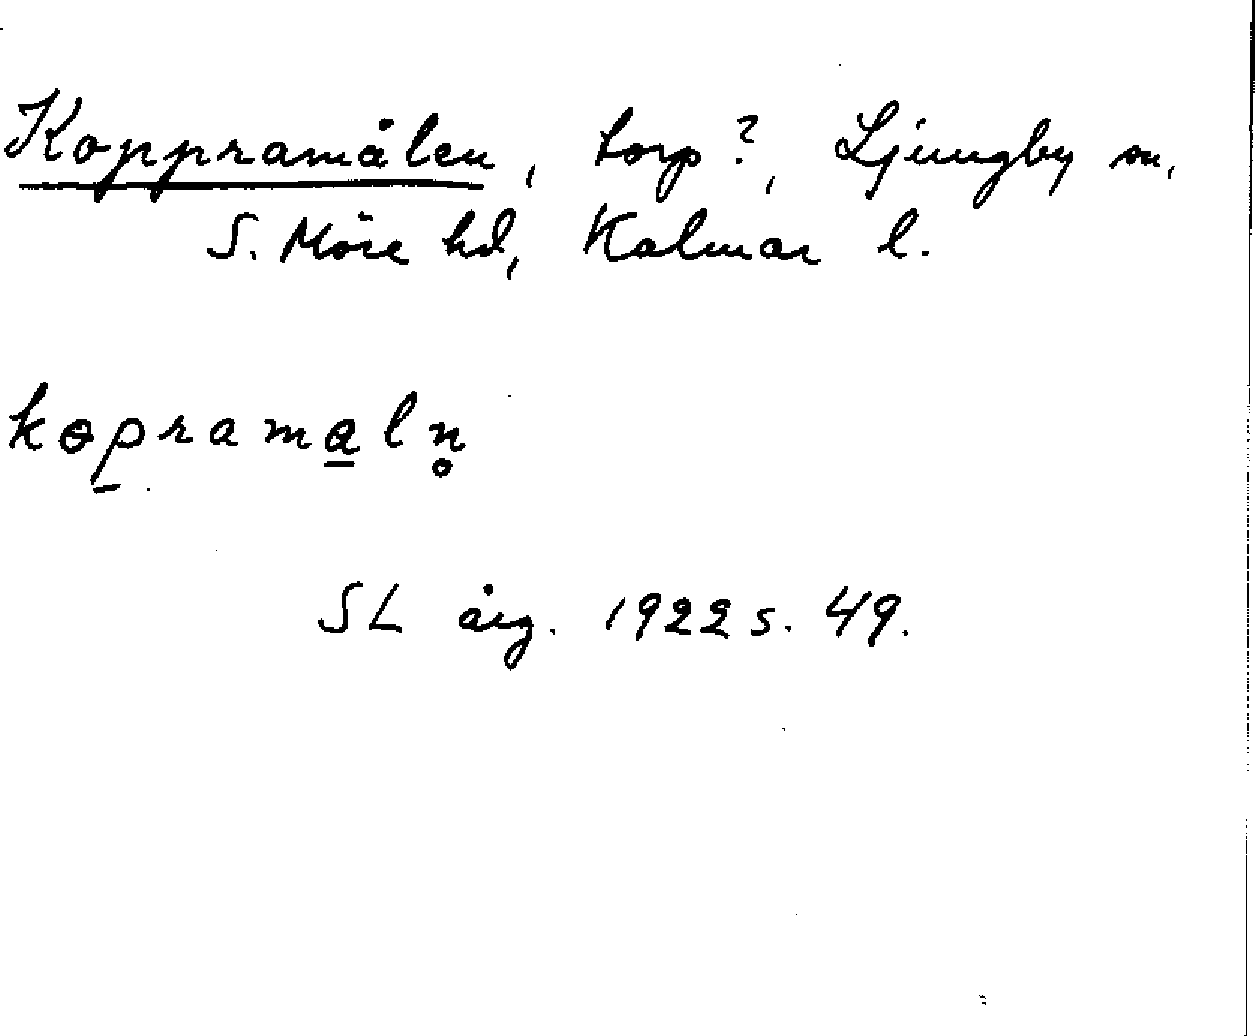 Koppramålen, torp?, Ljungby sn,
S. Möre hd, Kalmar l.
kɵp̠rama̠ln̥
SL årg. 1922 s. 49.